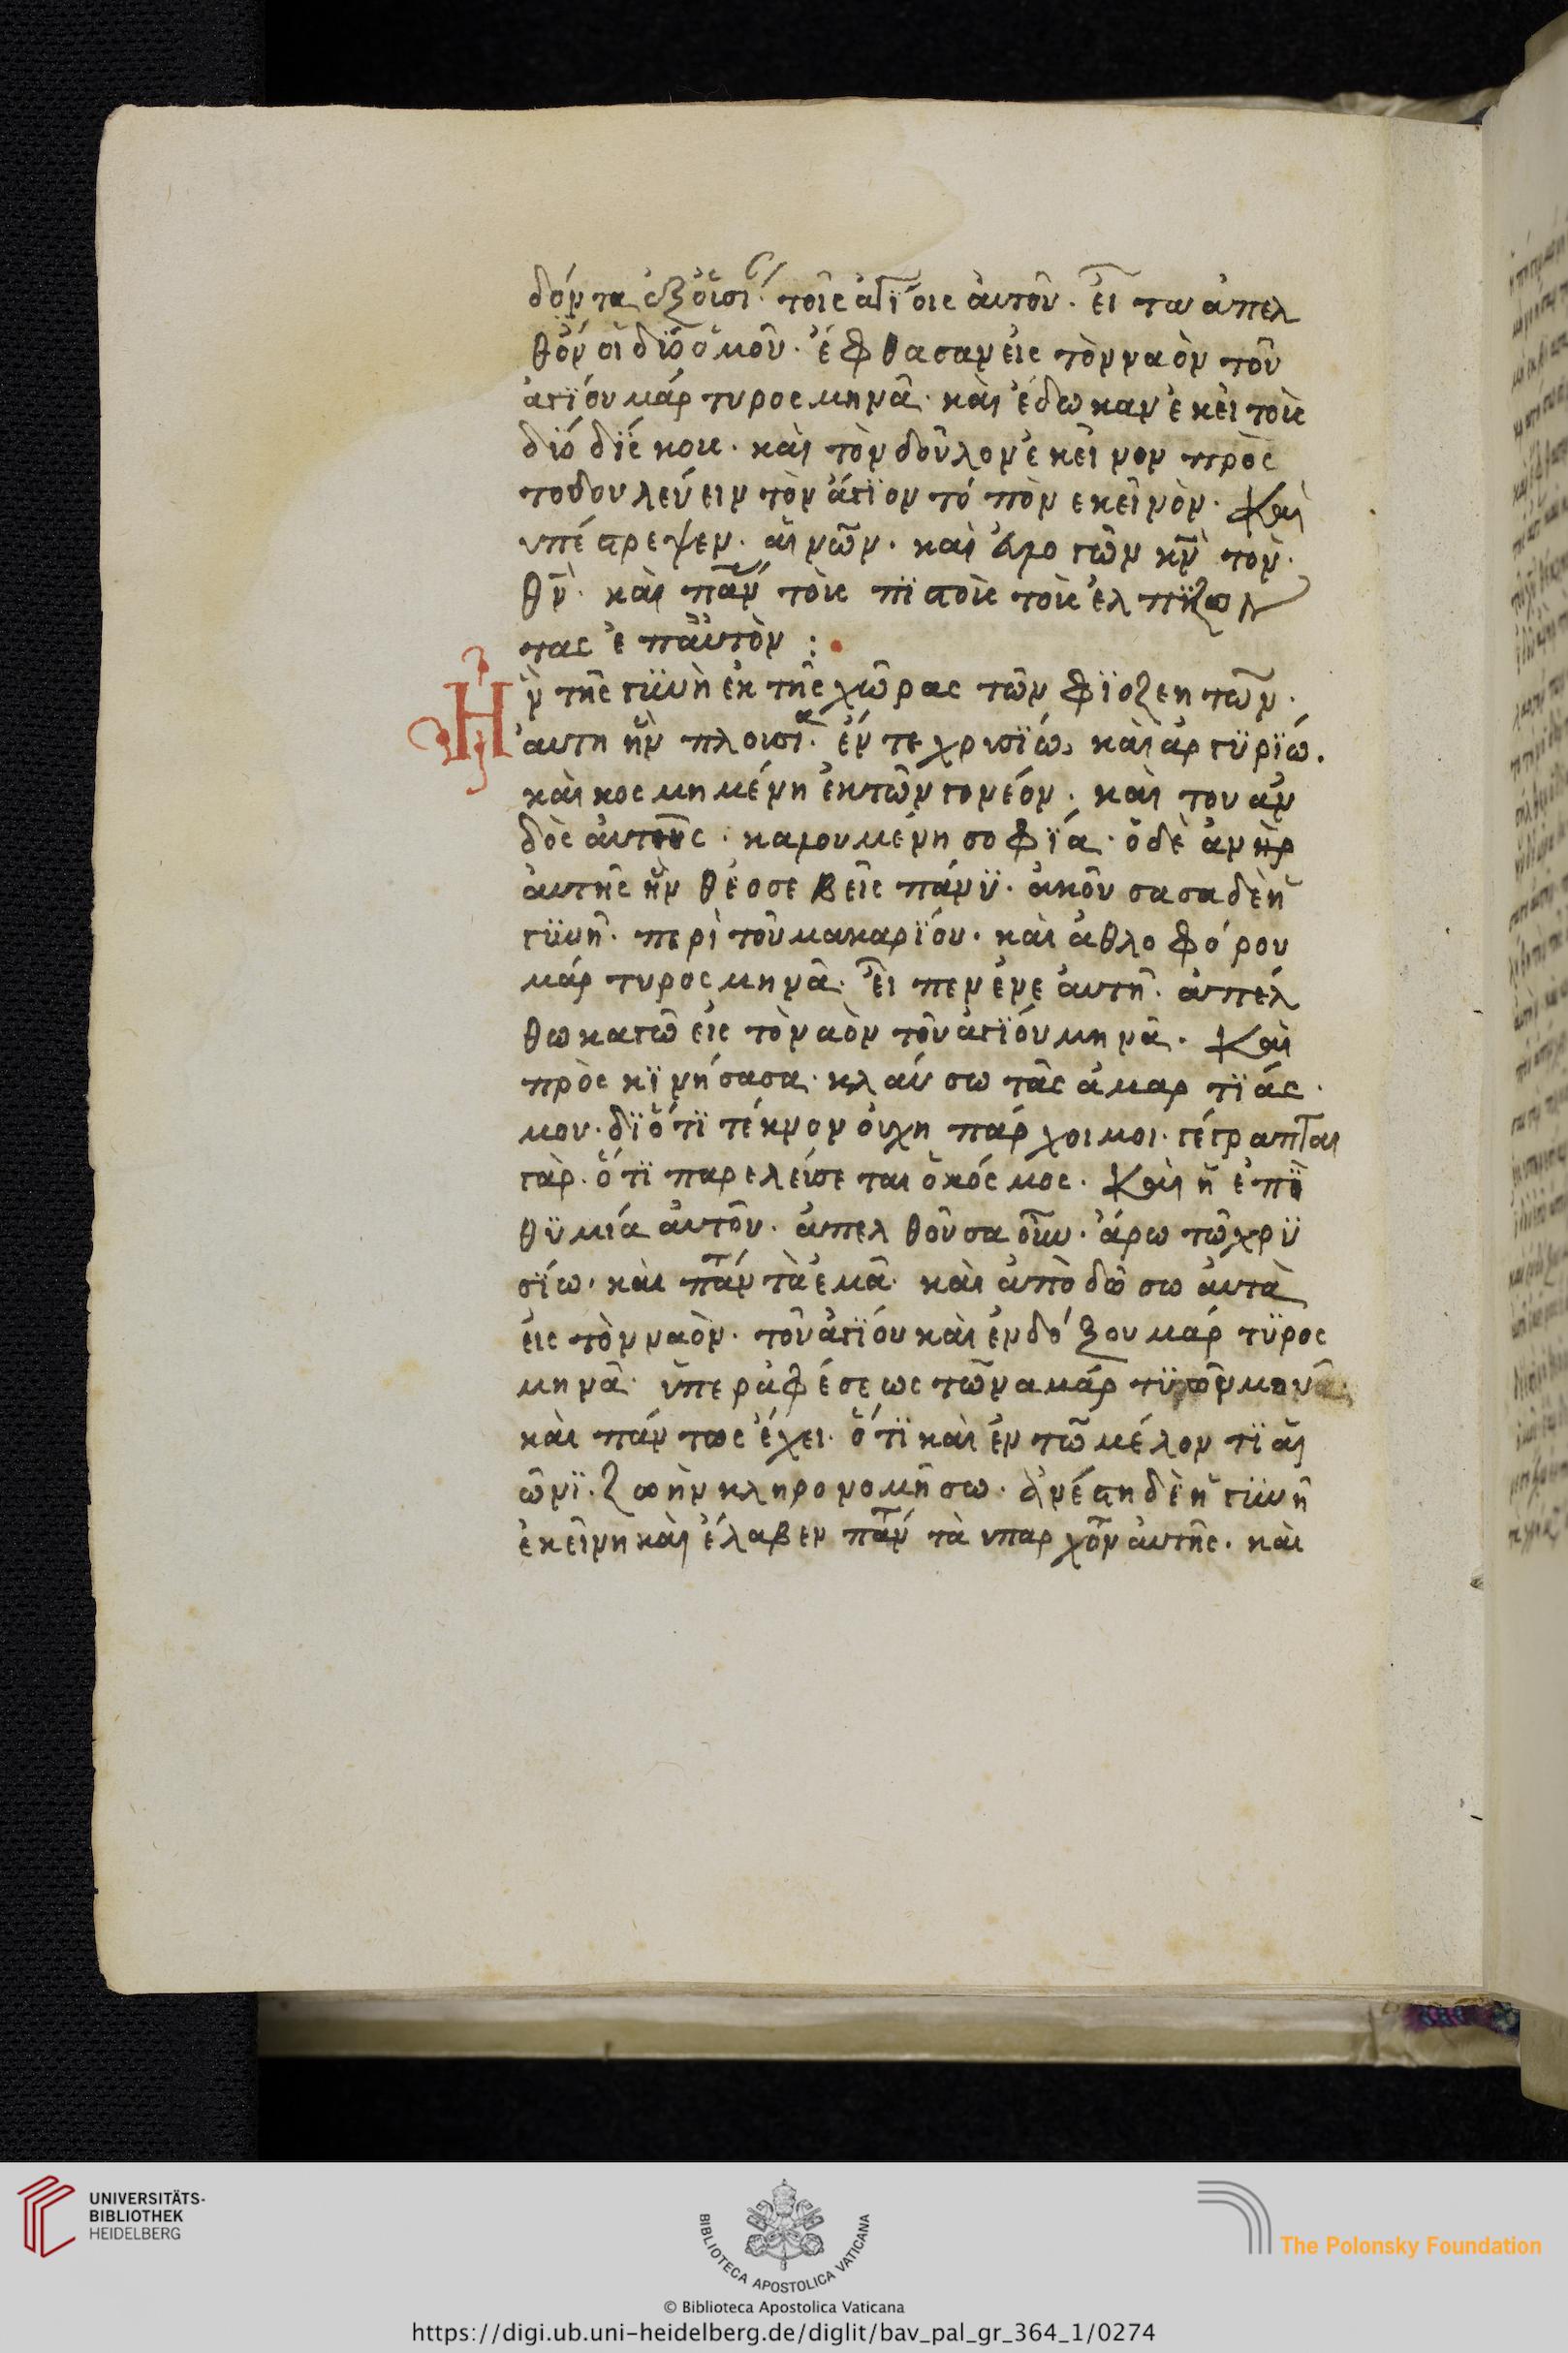 δόντα ἐξουσί τοῖς ἁγΐοις ἀυτοῦ. εἶτα ἀπελ
θόν οἱ δϊὸ ὁμοῦ. ἔφθασαν εἰς τὸν ναὸν τοῦ
ἁγΐου μάρτυρος μηνᾶ. καὶ ἔδωκαν ἐκεῖ τοὺς
δϊό δΐσκους. καὶ τὸν δοῦλον ἐκεῖνον πρὸς
το δουλεύειν τὸν ἅγϊον τόπον εκεῖνὸν. Καὶ
υπέστρεψεν. αἰνῶν. καὶ ἐυλογῶν κν̅ τὸν
θν̅. καὶ πάν τοὺς πϊστοὺς τοὺς ἐλπΐζον
τας ἐπἀυτὸν :
Ην τῆς γϋνὴ ἐκ τῆς χῶρας τῶν φϊοζεητῶν.
ἁυτη ἦν πλουσία. ἔν τε χρισΐω καὶ ἀργϋρΐω.
καὶ κοσμημένη ἐκ τῶν γονέον. καὶ του αν
δὸς ἀυτοῦς. καλουμένη σοφΐα. ὁ δὲ ἀνὴρ
ἀυτῆς ἦν θέοσεβεῖς πάνϋ. ἀκοῦσασα δὲ ἡ
γϋνῆ. περὶ τοῦ μακαρΐου. καὶ ἀθλοφόρου
μάρτυρος μηνᾶ. εἶπεν ἐνε ἀυτῆ. ἀπέλ
θω καγῶ εἰς τὸ ναὸν τοῦ ἁγΐου μηνᾶ. Καὶ
πρὸς κϊνήσασα. κλαύσω τᾶς ἁμαρτϊάς.
μου. δϊὅτϊ τέκνον ὀυχη πάρχοι μοι. γέγραπται
γὰρ. ὅτϊ παρελεύσεται ὁ κόσμος. Καὶ ἡ ἐπϊ
θϋμία ἀυτοῦ. ἀπελθοῦσα οὖν. ἄρω τῶ χρϋ
σΐω. καὶ πάντὰ ἐμᾶ. καὶ ἀποδώσω ἀυτὰ
εἰς τὸν ναὸν. τοῦ ἁγΐου καὶ ἐνδόξου μάρτϋρος
μηνᾶ. ὑπερ ἀφέσεως τῶν αμάρτϋῶν μην
καὶ πάντως ἔχει. ὅτϊ καὶ ἐν τῶ μέλοντϊ αἰ
ῶνϊ. ζωὴν κληρονομῆσω. ἀνέστη δὲ ἡ γϋνῆ
ἐκεῖνη καὶ ἔλαβεν πάν τὰ υπαρχον ἀυτῆς. καὶ
UNIVERSITÄTS-
BIBLIOTHEK
HEIDELBERG
BIBLIOTECA APOSTOLICA VATICANA
The Polonsky Foundation
© Biblioteca Apostolica Vaticana
https://digi.ub.uni-heidelberg.de/diglit/bav_pal_gr_364_1/0274